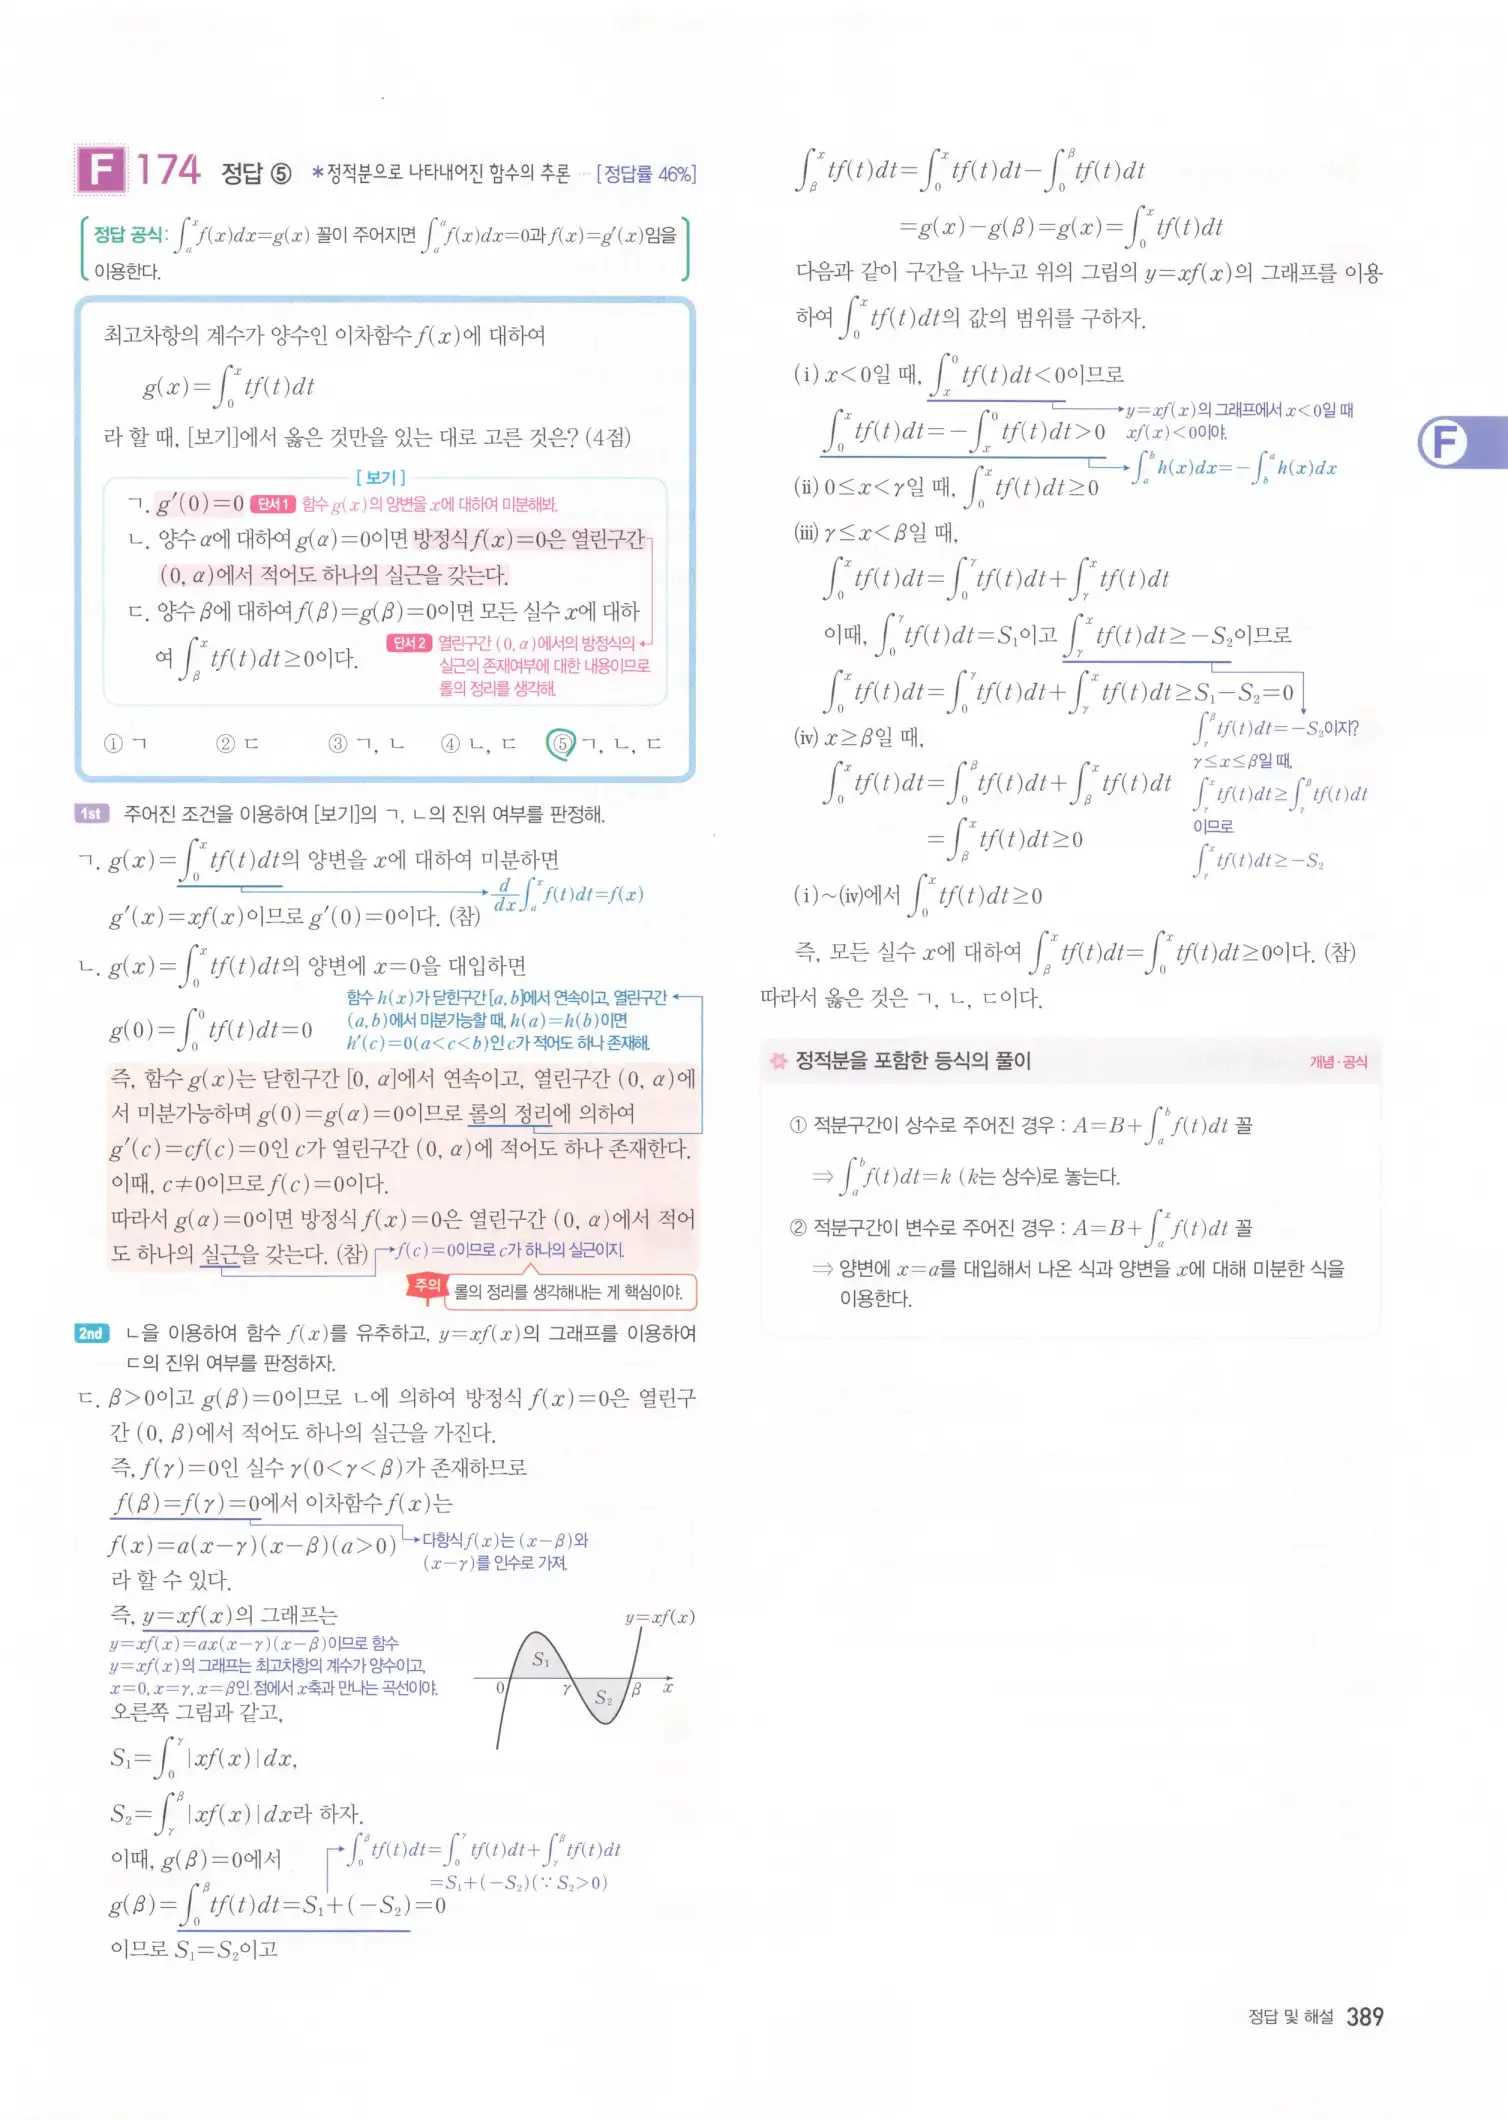 F 174 정답 ⑤ *정적분으로 나타내어진 함수의 추론 ··· [정답률 46%]
정답 공식: ∫ₐˣ f(x)dx=g(x) 꼴이 주어지면 ∫ₐᵃ f(x)dx=0과 f(x)=g′(x)임을
이용한다.
최고차항의 계수가 양수인 이차함수 f(x)에 대하여
g(x)=∫₀ˣ tf(t)dt
라 할 때, [보기]에서 옳은 것만을 있는 대로 고른 것은? (4점)
[보기]
ㄱ. g′(0)=0 단서1 함수 g(x)의 양변을 x에 대하여 미분해봐.
ㄴ. 양수 α에 대하여 g(α)=0이면 방정식 f(x)=0은 열린구간
(0, α)에서 적어도 하나의 실근을 갖는다.
ㄷ. 양수 β에 대하여 f(β)=g(β)=0이면 모든 실수 x에 대하
여 ∫_β^x tf(t)dt≥0이다.
단서2 열린구간 (0, α)에서의 방정식의
실근의 존재여부에 대한 내용이므로
롤의 정리를 생각해.
① ㄱ ② ㄷ ③ ㄱ, ㄴ ④ ㄴ, ㄷ ⑤ ㄱ, ㄴ, ㄷ
1st 주어진 조건을 이용하여 [보기]의 ㄱ, ㄴ의 진위 여부를 판정해.
ㄱ. g(x)=∫₀ˣ tf(t)dt의 양변을 x에 대하여 미분하면
d/dx ∫ₐˣ f(t)dt=f(x)
g′(x)=xf(x)이므로 g′(0)=0이다. (참)
ㄴ. g(x)=∫₀ˣ tf(t)dt의 양변에 x=0을 대입하면
g(0)=∫₀⁰ tf(t)dt=0
함수 h(x)가 닫힌구간 [a, b]에서 연속이고, 열린구간
(a, b)에서 미분가능할 때, h(a)=h(b)이면
h′(c)=0(a<c<b)인 c가 적어도 하나 존재해.
즉, 함수 g(x)는 닫힌구간 [0, α]에서 연속이고, 열린구간 (0, α)에
서 미분가능하며 g(0)=g(α)=0이므로 롤의 정리에 의하여
g′(c)=cf(c)=0인 c가 열린구간 (0, α)에 적어도 하나 존재한다.
이때, c≠0이므로 f(c)=0이다.
따라서 g(α)=0이면 방정식 f(x)=0은 열린구간 (0, α)에서 적어
도 하나의 실근을 갖는다. (참) f(c)=0이므로 c가 하나의 실근이지.
주의 롤의 정리를 생각해내는 게 핵심이야.
2nd ㄴ을 이용하여 함수 f(x)를 유추하고, y=xf(x)의 그래프를 이용하여
ㄷ의 진위 여부를 판정하자.
ㄷ. β>0이고 g(β)=0이므로 ㄴ에 의하여 방정식 f(x)=0은 열린구
간 (0, β)에서 적어도 하나의 실근을 가진다.
즉, f(γ)=0인 실수 γ(0<γ<β)가 존재하므로
f(β)=f(γ)=0에서 이차함수 f(x)는
f(x)=a(x−γ)(x−β)(a>0)
다항식 f(x)는 (x−β)와
(x−γ)를 인수로 가져.
라 할 수 있다.
즉, y=xf(x)의 그래프는
y=xf(x)=ax(x−γ)(x−β)이므로 함수
y=xf(x)의 그래프는 최고차항의 계수가 양수이고,
x=0, x=γ, x=β인 점에서 x축과 만나는 곡선이야.
오른쪽 그림과 같고,
y=xf(x)
S₁
0 γ S₂ β x
S₁=∫₀^γ |xf(x)|dx,
S₂=∫_γ^β |xf(x)|dx라 하자.
이때, g(β)=0에서
∫₀^β tf(t)dt=∫₀^γ tf(t)dt+∫_γ^β tf(t)dt
=S₁+(−S₂)(∵ S₂>0)
g(β)=∫₀^β tf(t)dt=S₁+(−S₂)=0
이므로 S₁=S₂이고
∫_β^x tf(t)dt=∫₀ˣ tf(t)dt−∫₀^β tf(t)dt
=g(x)−g(β)=g(x)=∫₀ˣ tf(t)dt
다음과 같이 구간을 나누고 위의 그림의 y=xf(x)의 그래프를 이용
하여 ∫₀ˣ tf(t)dt의 값의 범위를 구하자.
(i) x<0일 때, ∫ₓ⁰ tf(t)dt<0이므로
y=xf(x)의 그래프에서 x<0일 때
xf(x)<0이야.
∫₀ˣ tf(t)dt=−∫ₓ⁰ tf(t)dt>0
∫ₐᵇ h(x)dx=−∫_b^a h(x)dx
(ii) 0≤x<γ일 때, ∫₀ˣ tf(t)dt≥0
(iii) γ≤x<β일 때,
∫₀ˣ tf(t)dt=∫₀^γ tf(t)dt+∫_γ^x tf(t)dt
이때, ∫₀^γ tf(t)dt=S₁이고 ∫_γ^x tf(t)dt≥−S₂이므로
∫₀ˣ tf(t)dt=∫₀^γ tf(t)dt+∫_γ^x tf(t)dt≥S₁−S₂=0
∫_γ^β tf(t)dt=−S₂이지?
γ≤x≤β일 때,
∫_γ^x tf(t)dt≥∫_γ^β tf(t)dt
이므로
∫_γ^x tf(t)dt≥−S₂
(iv) x≥β일 때,
∫₀ˣ tf(t)dt=∫₀^β tf(t)dt+∫_β^x tf(t)dt
=∫_β^x tf(t)dt≥0
(i)~(iv)에서 ∫₀ˣ tf(t)dt≥0
즉, 모든 실수 x에 대하여 ∫_β^x tf(t)dt=∫₀ˣ tf(t)dt≥0이다. (참)
따라서 옳은 것은 ㄱ, ㄴ, ㄷ이다.
정적분을 포함한 등식의 풀이 개념·공식
① 적분구간이 상수로 주어진 경우 : A=B+∫ₐᵇ f(t)dt 꼴
⇒ ∫ₐᵇ f(t)dt=k (k는 상수)로 놓는다.
② 적분구간이 변수로 주어진 경우 : A=B+∫ₐˣ f(t)dt 꼴
⇒ 양변에 x=a를 대입해서 나온 식과 양변을 x에 대해 미분한 식을
이용한다.
F
정답 및 해설 389